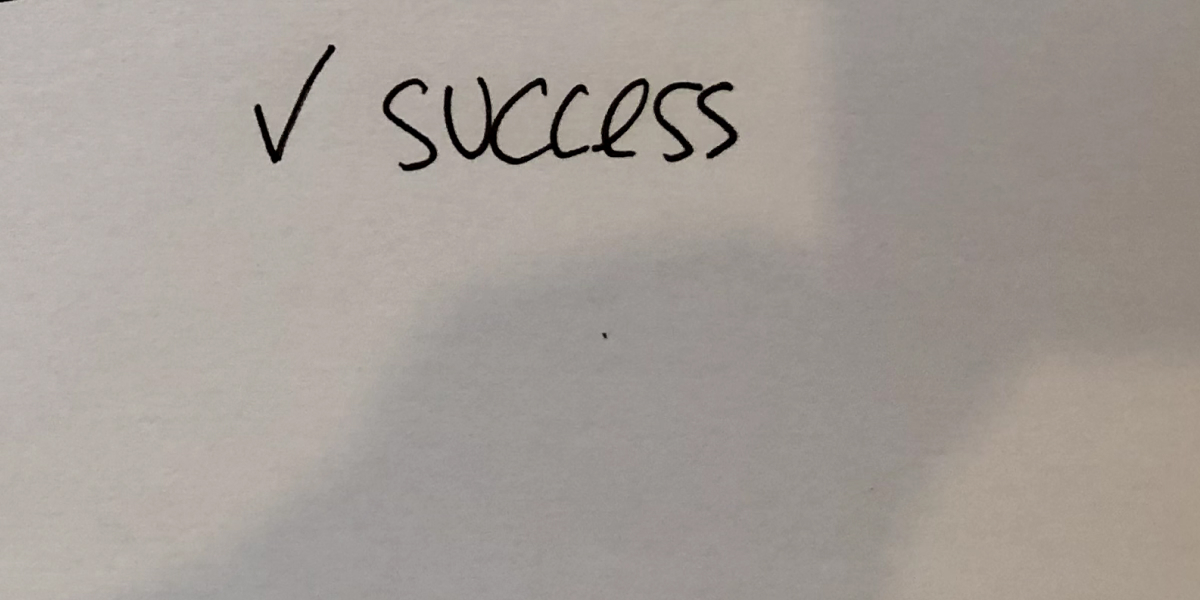 ✓ success